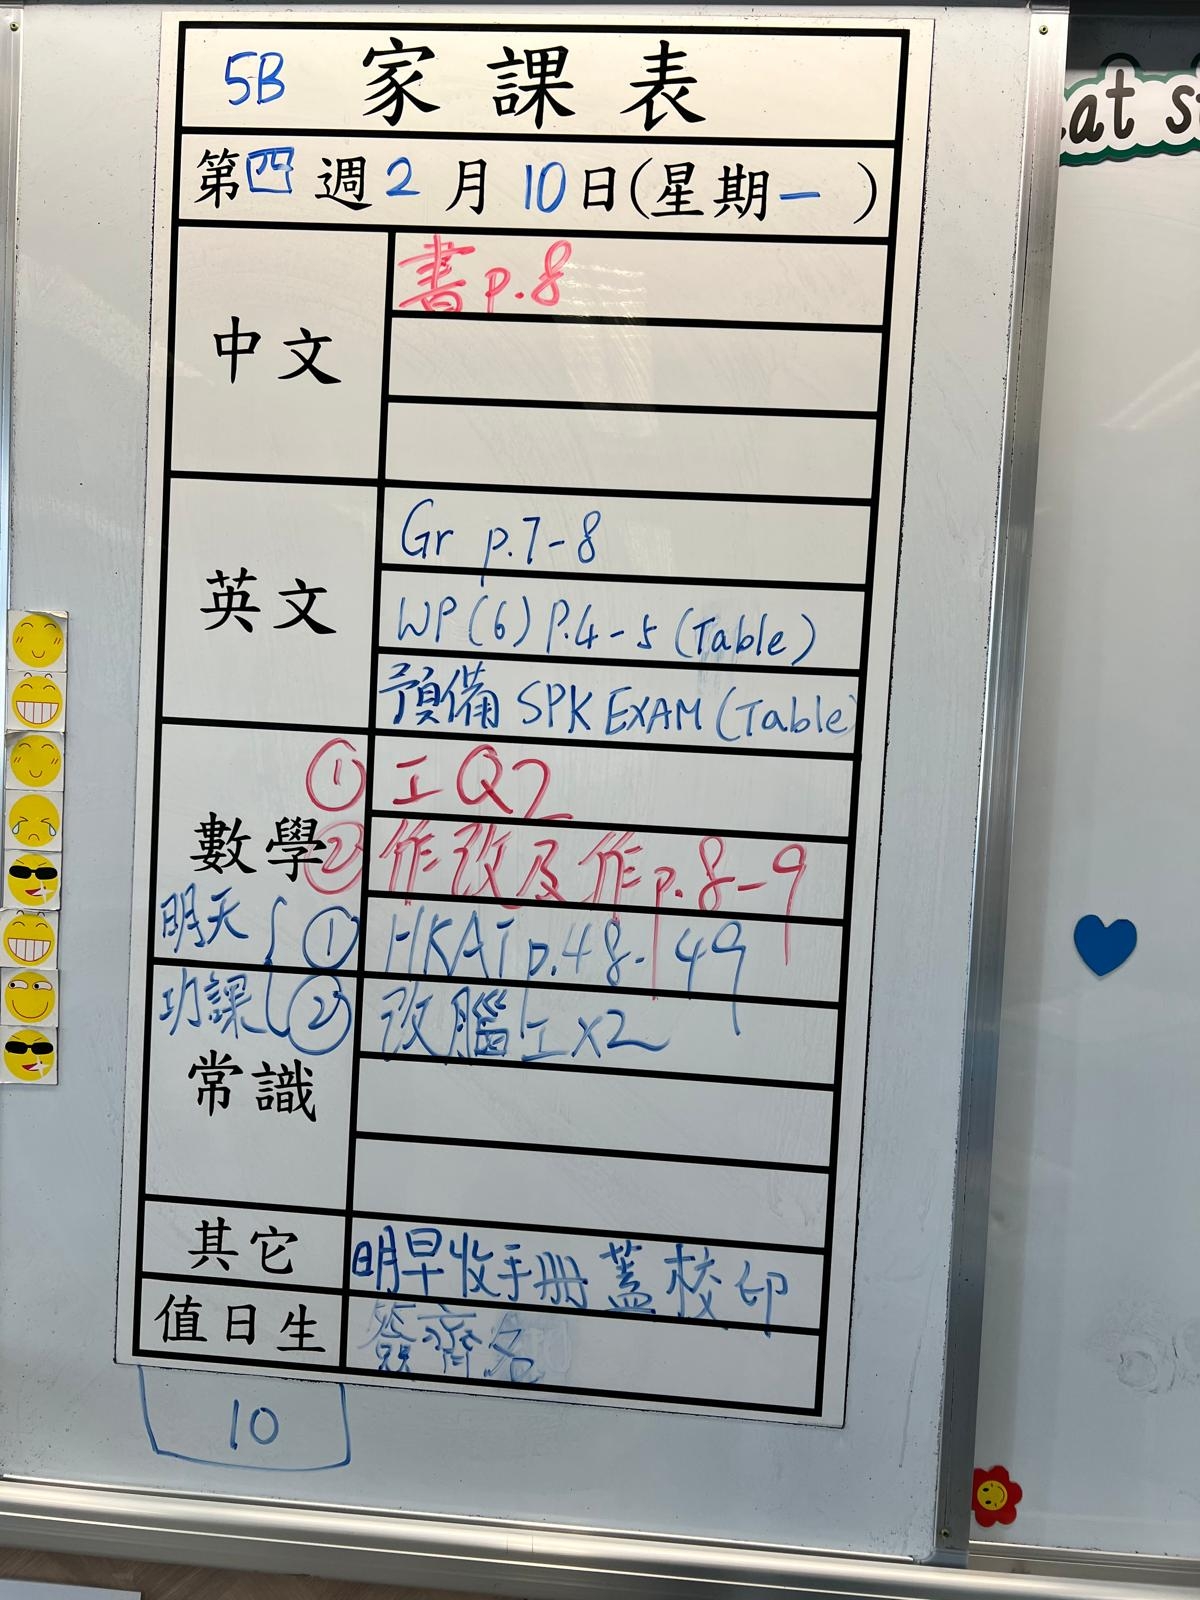 5B 家課表
第四週2月10日(星期一)
中文
書p.8
英文
Gr p.7-8
WP(6) P.4-5 (Table)
預備 SPK EXAM (Table)
數學
① 工Q2
② 作改及作p.8-9
明天功課
① HKAT p.48-49
② 改腦工x2
常識
其它
明早收手冊蓋校印
值日生
簽齊名
10
at s